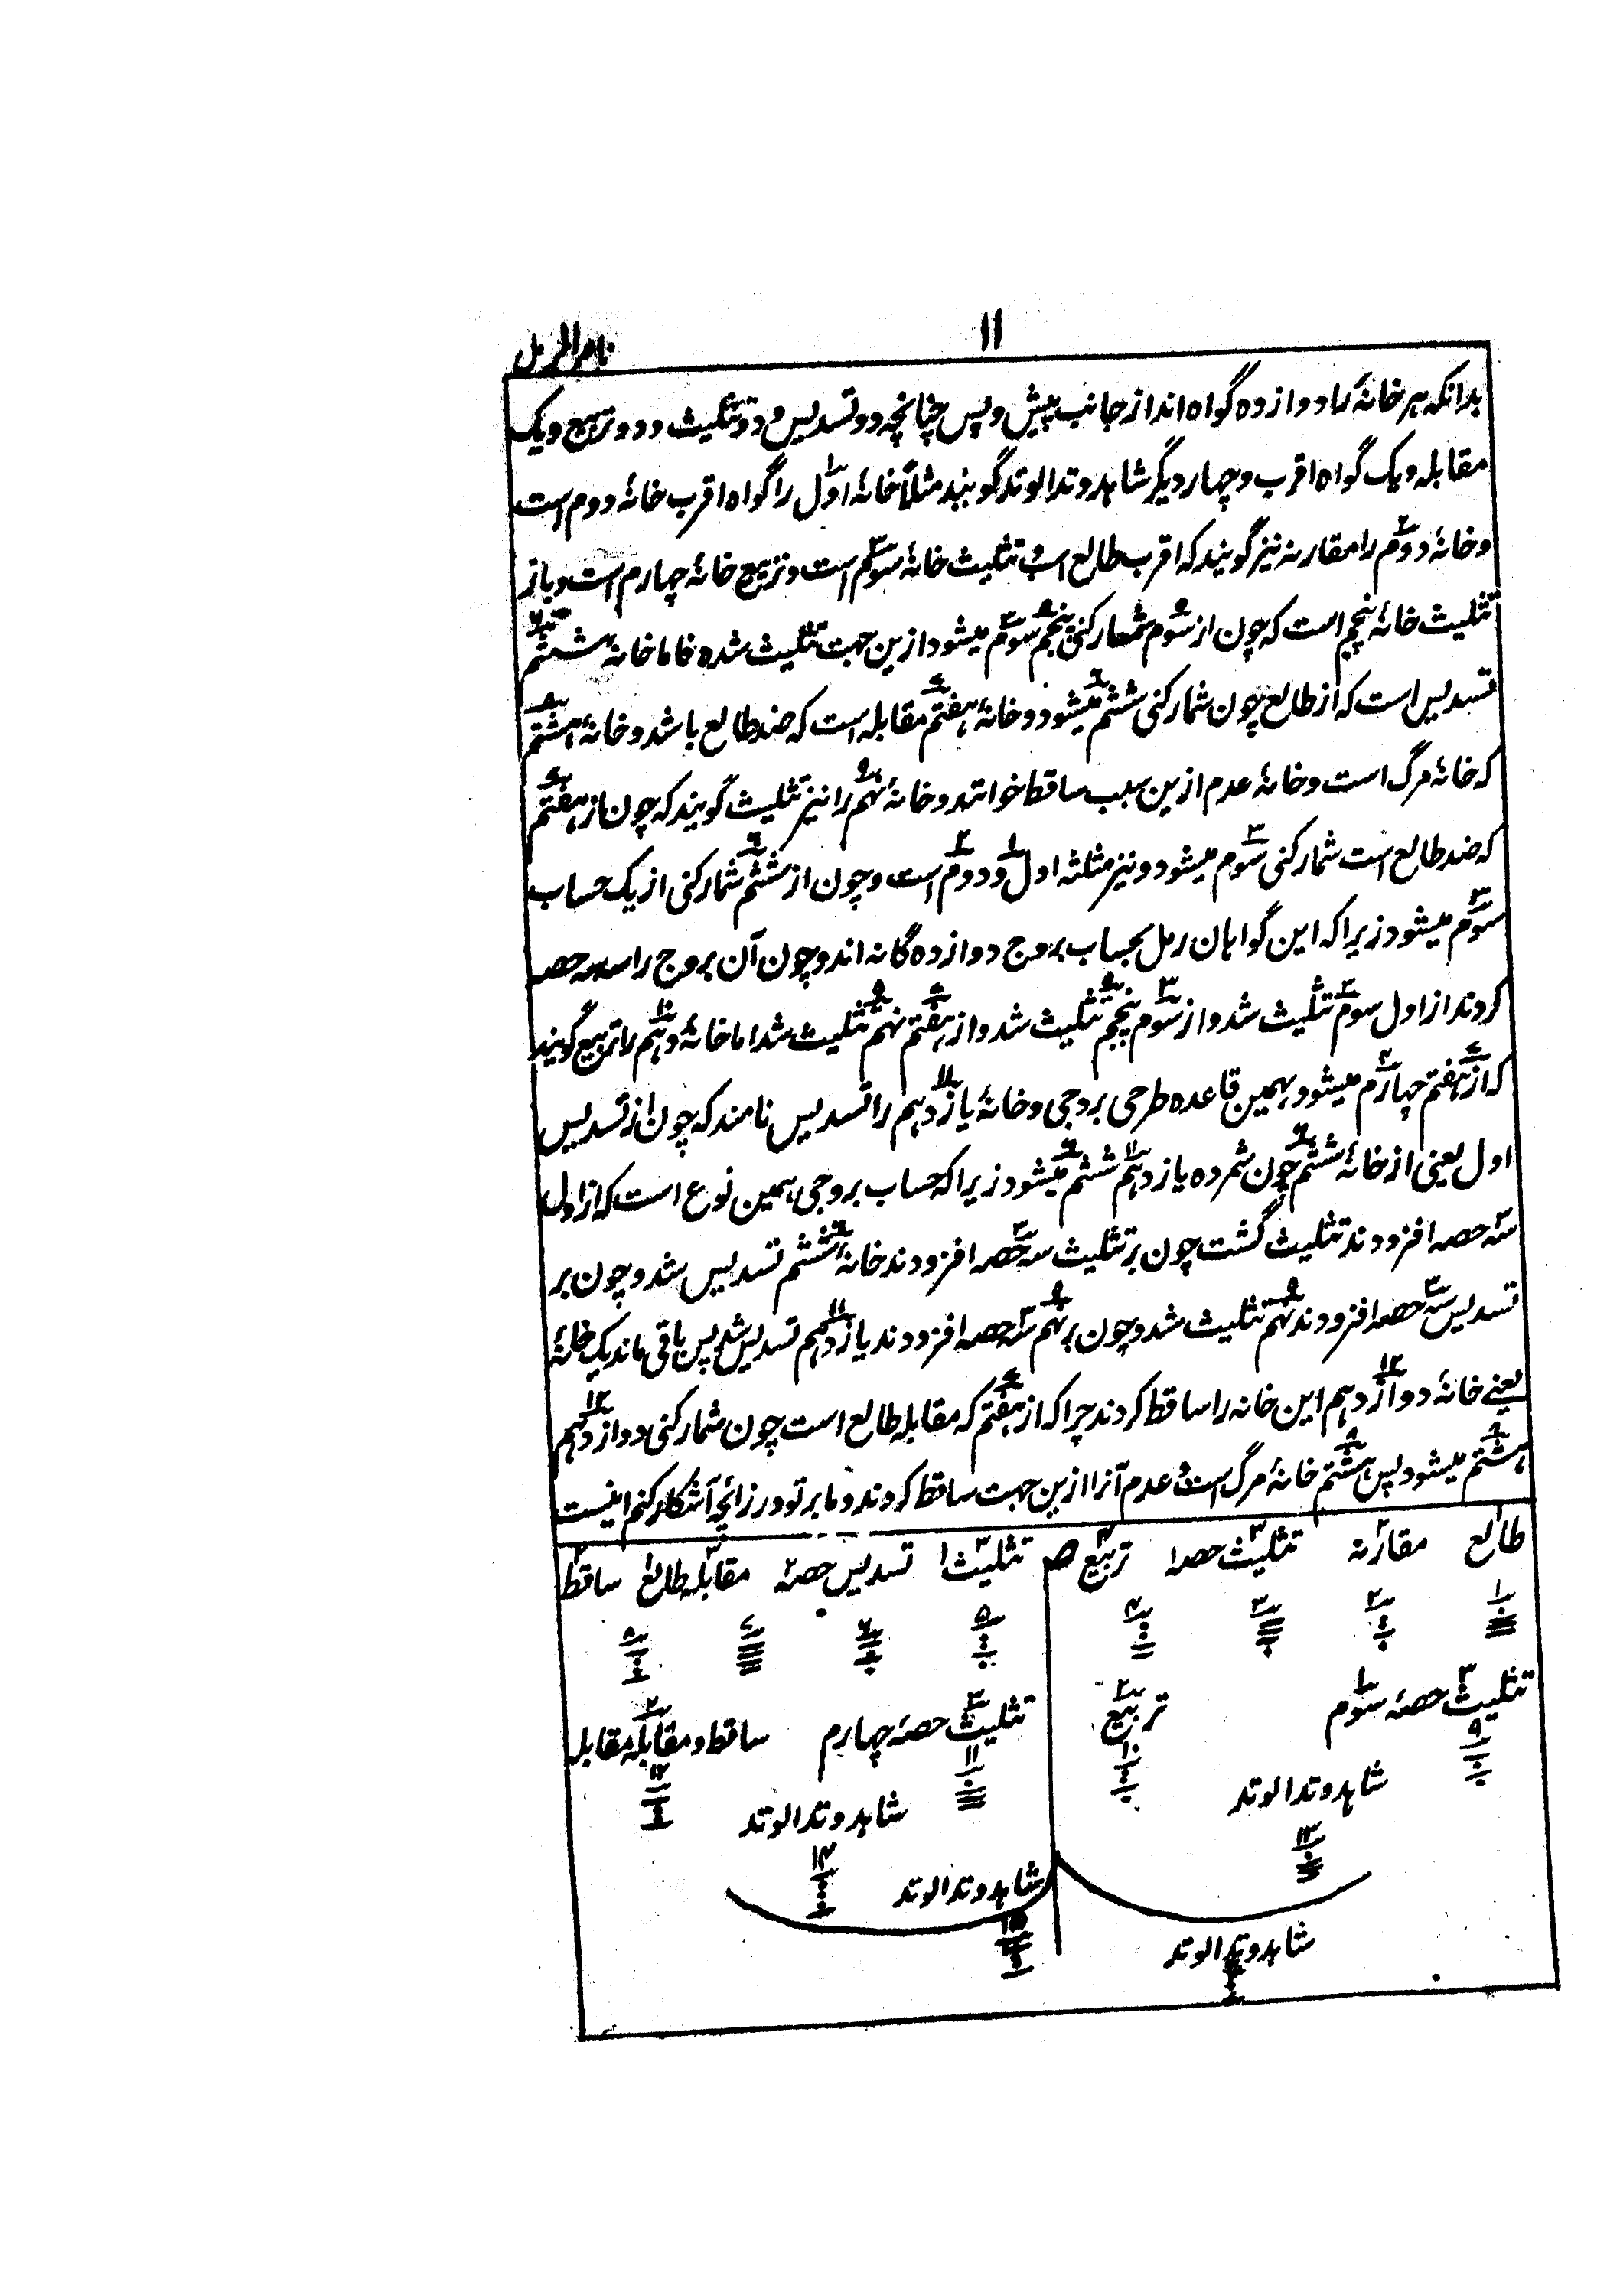 ۱۱
ناصر الرمل
بدانکه هر خانهٔ را دوازده گواه اند از جانب پیش و پس چنانچه دو تسدیس و دو تثلیث و دو تربیع و یک
مقابله و یک گواه اقرب و چهار دیگر شاهد وتد الوتد گویند مثلاً خانهٔ اول را گواه اقرب خانهٔ دوم است
و خانهٔ دوم را مقارنه نیز گویند که اقرب طالع است و تثلیث خانهٔ سوم است و تربیع خانهٔ چهارم است و باز
تثلیث خانهٔ پنجم است که چون از سوم شمار کنی پنجم سوم میشود ازین جهت تثلیث شده فاما خانهٔ ششم
تسدیس است که از طالع چون شمار کنی ششم میشود و خانهٔ هفتم مقابله است که ضد طالع باشد و خانهٔ هشتم
که خانهٔ مرگ است و خانهٔ عدم ازین سبب ساقط خوانند و خانهٔ نهم را نیز تثلیث گویند که چون از هفتم
که ضد طالع است شمار کنی سوم میشود و نیز مثلثه اول و دوم است و چون از ششم شمار کنی از یک حساب
سوم میشود زیرا که این گواهان رمل بحساب بروج دوازده گانه اند و چون آن بروج را سه حصه
کردند از اول سوم تثلیث شد و از سوم پنجم تثلیث شد و از هفتم نهم تثلیث شد اما خانهٔ دهم را تربیع گویند
که از هفتم چهارم میشود بهمین قاعده طرحی بروجی و خانهٔ یازدهم را تسدیس نامند که چون از تسدیس
اول یعنی از خانهٔ ششم چون شمرده یازدهم ششم میشود زیرا که حساب بروجی همین نوع است که از اول
سه حصه افزودند تثلیث گشت چون بر تثلیث سه حصه افزودند خانهٔ ششم تسدیس شد و چون بر
تسدیس سه حصه افزودند نهم تثلیث شد و چون بر نهم سه حصه افزودند یازدهم تسدیس شد پس باقی ماند یک خانهٔ
یعنے خانهٔ دوازدهم این خانه را ساقط کردند چرا که از هفتم که مقابله طالع است چون شمار کنی دوازدهم
هشتم میشود پس هشتم خانهٔ مرگ است و عدم آنرا ازین جهت ساقط کردند و ما بر تو در زائچه آشکار کنم اینست
طالع مقارنه تثلیث حصه ۱ تربیع تثلیث ۱ تسدیس حصه مقابله طالع ساقط
۱ ۲ ۳ ۴ ۵ ۶ ۷ ۸
تثلیث حصهٔ سوم تربیع تثلیث حصهٔ چهارم ساقط و مقابله مقابله
۹ ۱۰ ۱۱ ۱۲
شاهد وتد الوتد شاهد وتد الوتد
۱۳ ۱۴
شاهد وتد الوتد
۱۵
شاهد وتد الوتد